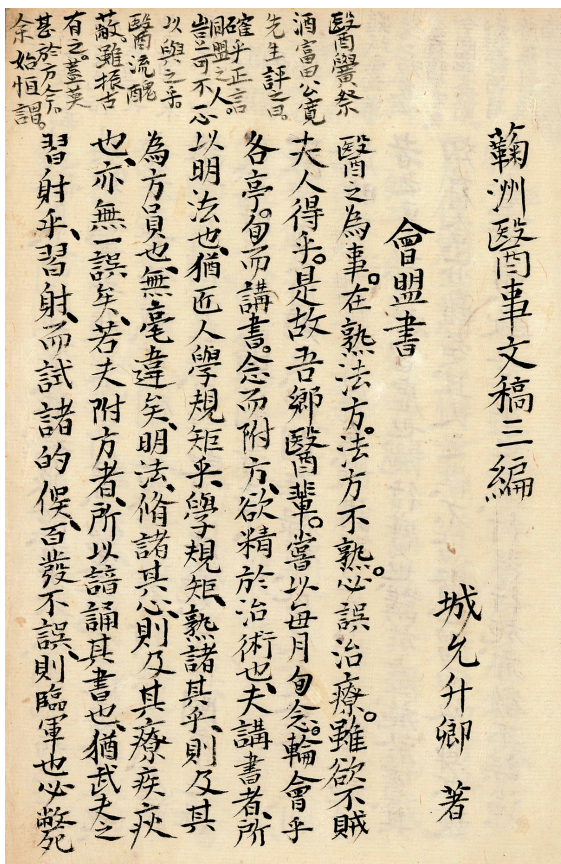 蘜洲醫事文稿三編
城允升卿 著
會盟書
醫之為事。在熟法方。法方不熟。必誤治療。雖欲不賊
夫人得乎。是故吾鄉醫輩。嘗以每月旬念。輪會乎
各亭。旬而講書。念而附方、欲精於治術也、夫講書者、所
以明法也、猶匠人學規矩乎、學規矩、熟諸其乎、則及其
為方員也、無毫違矣、明法、脩諸其心、則及其療疾疢
也、亦無一誤矣、若夫附方者、所以諳誦其書也、猶武夫之
習射乎、習射、而試諸的侯、百發不誤、則臨軍也必斃
醫黌祭
酒富田公寬
先生評之曰。
確乎正言。
同盟之人。
豈可不一心
以與之乎。
醫流醜
蔽。雖振古
有之。蓋莫
甚於方今。
余始恒謂。